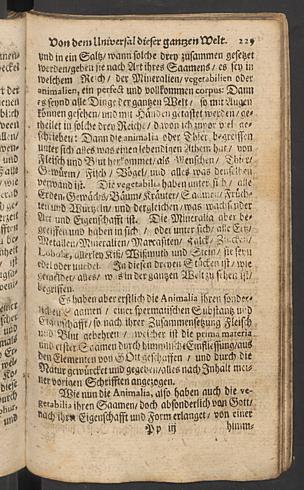 Von dem Universal dieser gantzen Welt. 229
und in ein Saltz / wann solche drey zusammen gesetzet
werden / geben sie nach Art ihres Saamens / es sey in
welchem Reich / der Mineralien / vegetabilien oder
animalien, ein perfect und vollkommen corpus: Dann
es seynd alle Dinge der gantzen Welt / so mit Augen
können gesehen / und mit Händen getastet werden / ge-
theilet in solche drey Reiche / davon ich zuvor viel ge-
schrieben: Dann die animalia oder Thier begreiffen
unter sich alles was einen lebendigen Athem hat / von
Fleisch und Blut herkommet / als Menschen / Thier /
Gewürm / Fisch / Vögel / und alles was denselben
verwand ist. Die vegetabilia haben unter sich / alle
Erden-Gewächs / Bäum / Kräuter / Saamen / Früch-
ten und Wurtzeln / und dergleichen / was wachsender
Art und Eigenschafft ist. Die Mineralia aber be-
greiffen und haben in sich / oder unter sich / alle Ertz /
Metallen / Mineralien / Marcasiten / Kalck / Zincken /
allerley Kiß / Wißmuth und Stein / sie seyn
edel oder unedel. In diesen dreyen Stücken ist / wie
gemeldet / alles / was in der gantzen Welt zu sehen ist /
begriffen.
Es haben aber erstlich die Animalia ihren sonder-
lichen Saamen / einer spermatischen Substantz und
Eigenschafft / so nach ihrer Zusammensetzung Fleisch
und Blut gebehren / welcher ist die prima materia
und erster Saamen durch himmlische Einfliessung / aus
den Elementen von GOtt geschaffen / und durch die
Natur gewürcket und gegeben / alles nach Inhalt mei-
ner vorigen Schrifften angezogen.
Wie nun die Animalia, also haben auch die ve-
getabilia ihren Saamen / doch absonderlich von Gott /
nach ihrer Eigenschafft und Form erlanget / von einer
Pp iij himm-